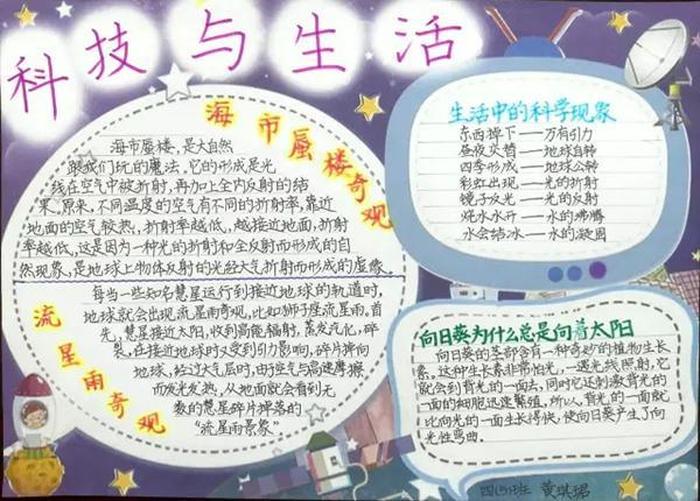 科技与生活
海市蜃楼奇观
海市蜃楼,是大自然
跟我们玩的魔法,它的形成是光
线在空气中被折射,再加上全内反射的结
果,原来,不同温度的空气有不同的折射率,靠近
地面的空气较热,折射率越低,越接近地面,折射
率越低,这是因为一种光的折射和全反射而形成的自
然现象,是地球上物体反射的光经大气折射而形成的虚像。
流星雨奇观
每当一些知名慧星运行到接近地球的轨道时,
地球就会出现流星雨奇观,比如狮子座流星雨,首
先,慧星接近太阳,收到高能辐射,蒸发汽化,碎
裂,在接近地球时又受到引力影响,碎片掉向
地球,经过大气层时,由于空气与高速摩擦
而发光发热,从地面就会看到无
数的慧星碎片掉落的
“流星雨景象”
生活中的科学现象
东西掉下——万有引力
昼夜交替——地球自转
四季形成——地球公转
彩虹出现——光的折射
镜子反光——光的反射
烧水水开——水的沸腾
水会结冰——水的凝固
向日葵为什么总是向着太阳
向日葵的茎部含有一种奇妙的植物生长
素,这种生长素非常怕光,一遇光线照射,它
就会到背光的一面去,同时它还刺激背光的
一面的细胞迅速繁殖,所以,背光的一面就
比向光的一面生长得快,使向日葵产生了向
光性弯曲。
四(5)班 黄琪珺